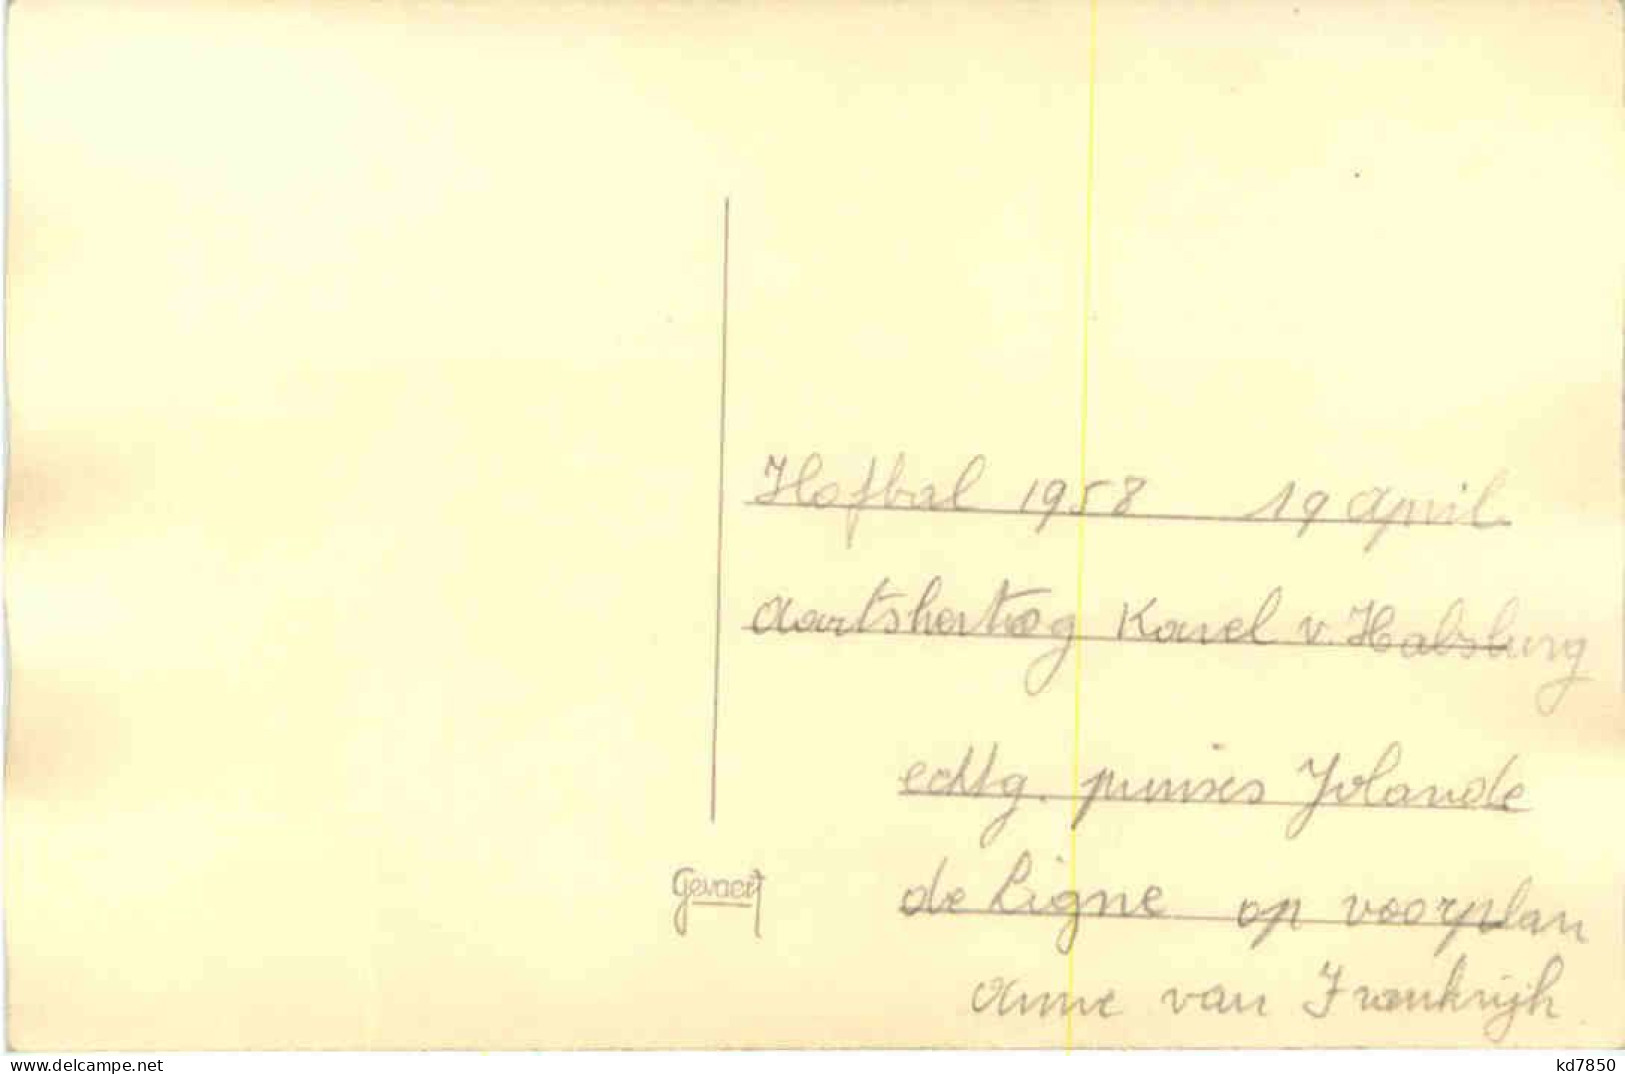 Hofbal 1958 19 April
Aartshertog Karel v. Habsburg
echtg. prinses Yolande
de Ligne op voorplan
Anne van Frankrijk
Gevaert
delcampe.net
kd7850